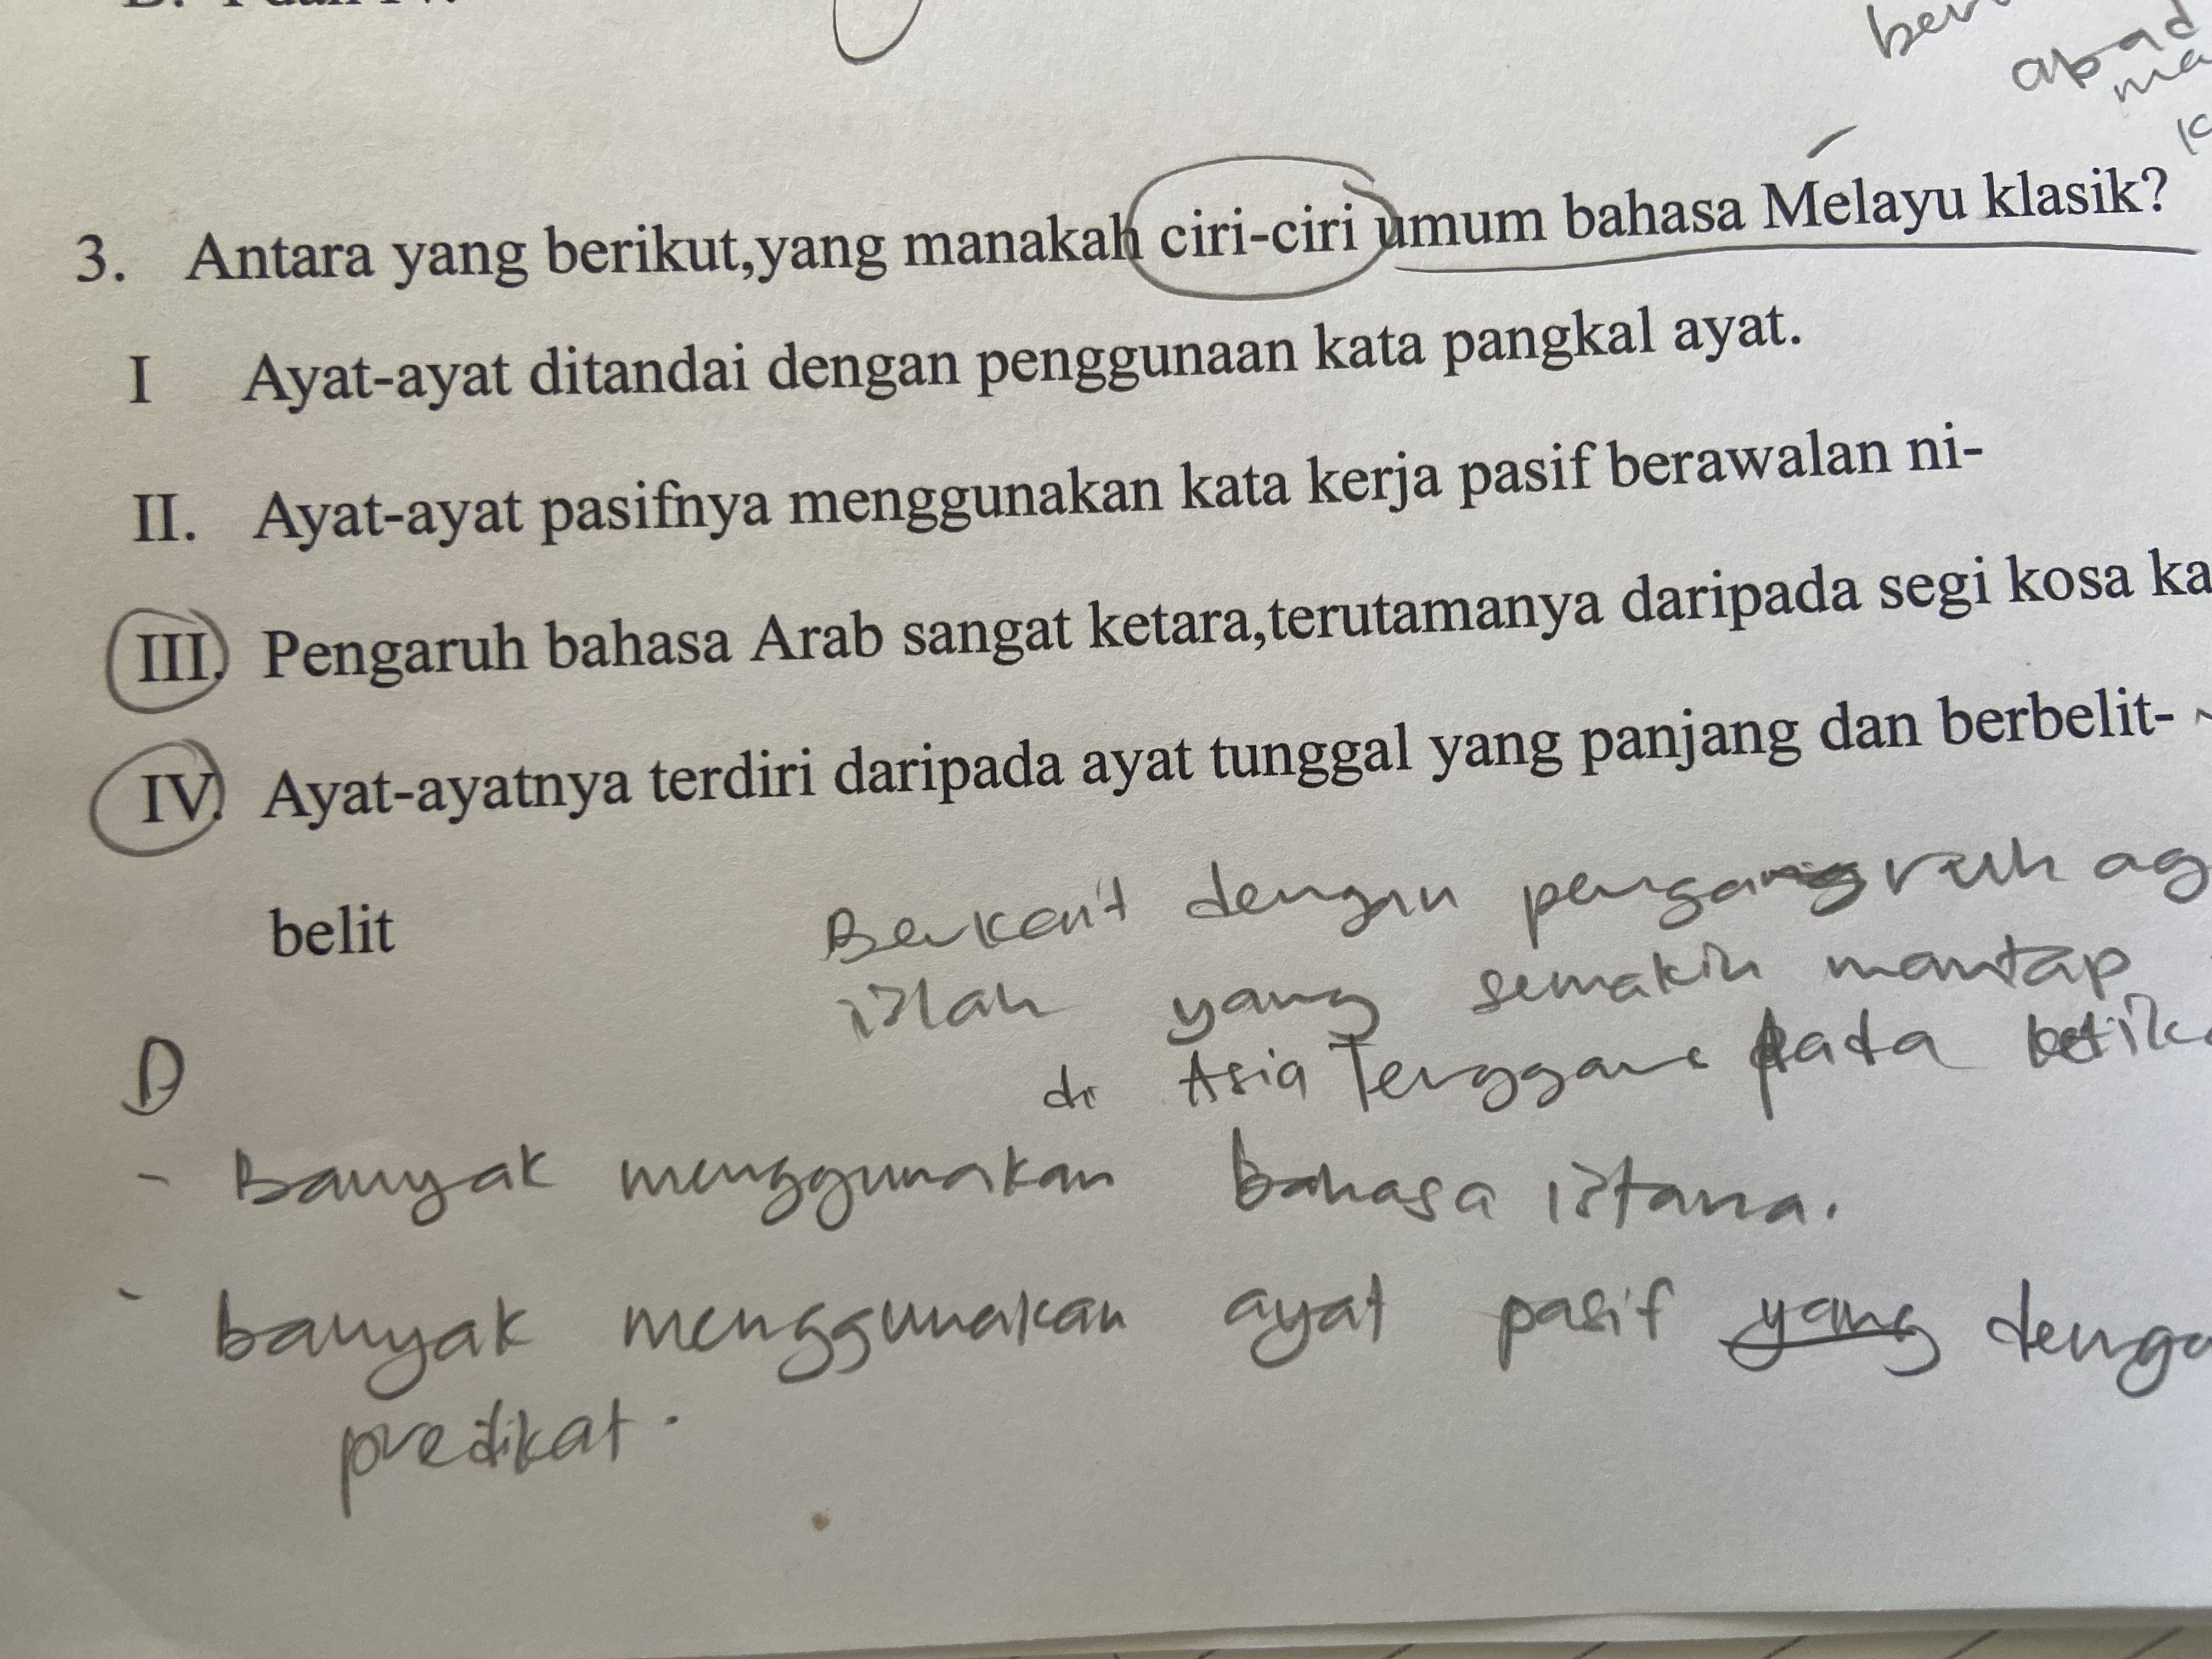 3. Antara yang berikut,yang manakah ciri-ciri umum bahasa Melayu klasik?
I Ayat-ayat ditandai dengan penggunaan kata pangkal ayat.
II. Ayat-ayat pasifnya menggunakan kata kerja pasif berawalan ni-
III. Pengaruh bahasa Arab sangat ketara,terutamanya daripada segi kosa ka
IV. Ayat-ayatnya terdiri daripada ayat tunggal yang panjang dan berbelit-
belit
Berkait dengan ag
islam yang semakin mantap
di Asia Tenggara pada
D
- banyak menggunakan bahasa istana.
- banyak menggunakan ayat pasif yang denga
predikat.